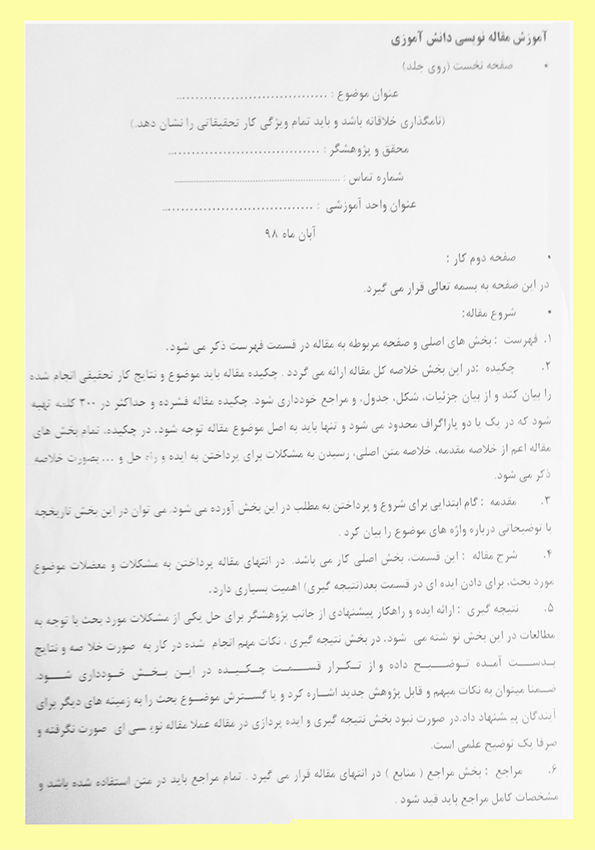 آموزش مقاله نویسی دانش آموزی
• صفحه نخست (روی جلد)
عنوان موضوع : ....................................
(نامگذاری خلاقانه باشد و باید تمام ویژگی کار تحقیقاتی را نشان دهد.)
محقق و پژوهشگر : ....................................
شماره تماس : ....................................
عنوان واحد آموزشی : ....................................
آبان ماه ۹۸
• صفحه دوم کار :
در این صفحه به بسمه تعالی قرار می گیرد.
• شروع مقاله:
۱. فهرست : بخش های اصلی و صفحه مربوطه به مقاله در قسمت فهرست ذکر می شود.
۲. چکیده :در این بخش خلاصه کل مقاله ارائه می گردد . چکیده مقاله باید موضوع و نتایج کار تحقیقی انجام شده
را بیان کند و از بیان جزئیات، شکل، جدول، و مراجع خودداری شود. چکیده مقاله فشرده و حداکثر در ۳۰۰ کلمه تهیه
شود که در یک یا دو پاراگراف محدود می شود و تنها باید به اصل موضوع مقاله توجه شود، در چکیده، تمام بخش های
مقاله اعم از خلاصه مقدمه، خلاصه متن اصلی، رسیدن به مشکلات برای پرداختن به ایده و راه حل و ... بصورت خلاصه
ذکر می شود.
۳. مقدمه : گام ابتدایی برای شروع و پرداختن به مطلب در این بخش آورده می شود. می توان در این بخش تاریخچه
با توضیحاتی درباره واژه های موضوع را بیان کرد .
۴. شرح مقاله : این قسمت، بخش اصلی کار می باشد. در انتهای مقاله پرداختن به مشکلات و معضلات موضوع
مورد بحث، برای دادن ایده ای در قسمت بعد(نتیجه گیری) اهمیت بسیاری دارد.
۵. نتیجه گیری : ارائه ایده و راهکار پیشنهادی از جانب پژوهشگر برای حل یکی از مشکلات مورد بحث با توجه به
مطالعات در این بخش نو شته می شود، در بخش نتیجه گیری ، نکات مهم انجام شده در کار به صورت خلا صه و نتایج
بدست آمده توضیح داده و از تکرار قسمت چکیده در این بخش خودداری شود.
ضمنا میتوان به نکات مبهم و قابل پژوهش جدید اشاره کرد و یا گسترش موضوع بحث را به زمینه های دیگر برای
آیندگان پیشنهاد داد.در صورت نبود بخش نتیجه گیری و ایده پردازی در مقاله عملا مقاله نویسی ای صورت نگرفته و
صرفا یک توضیح علمی است.
۶. مراجع : بخش مراجع ( منابع ) در انتهای مقاله قرار می گیرد . تمام مراجع باید در متن استفاده شده باشد و
مشخصات کامل مراجع باید قید شود .